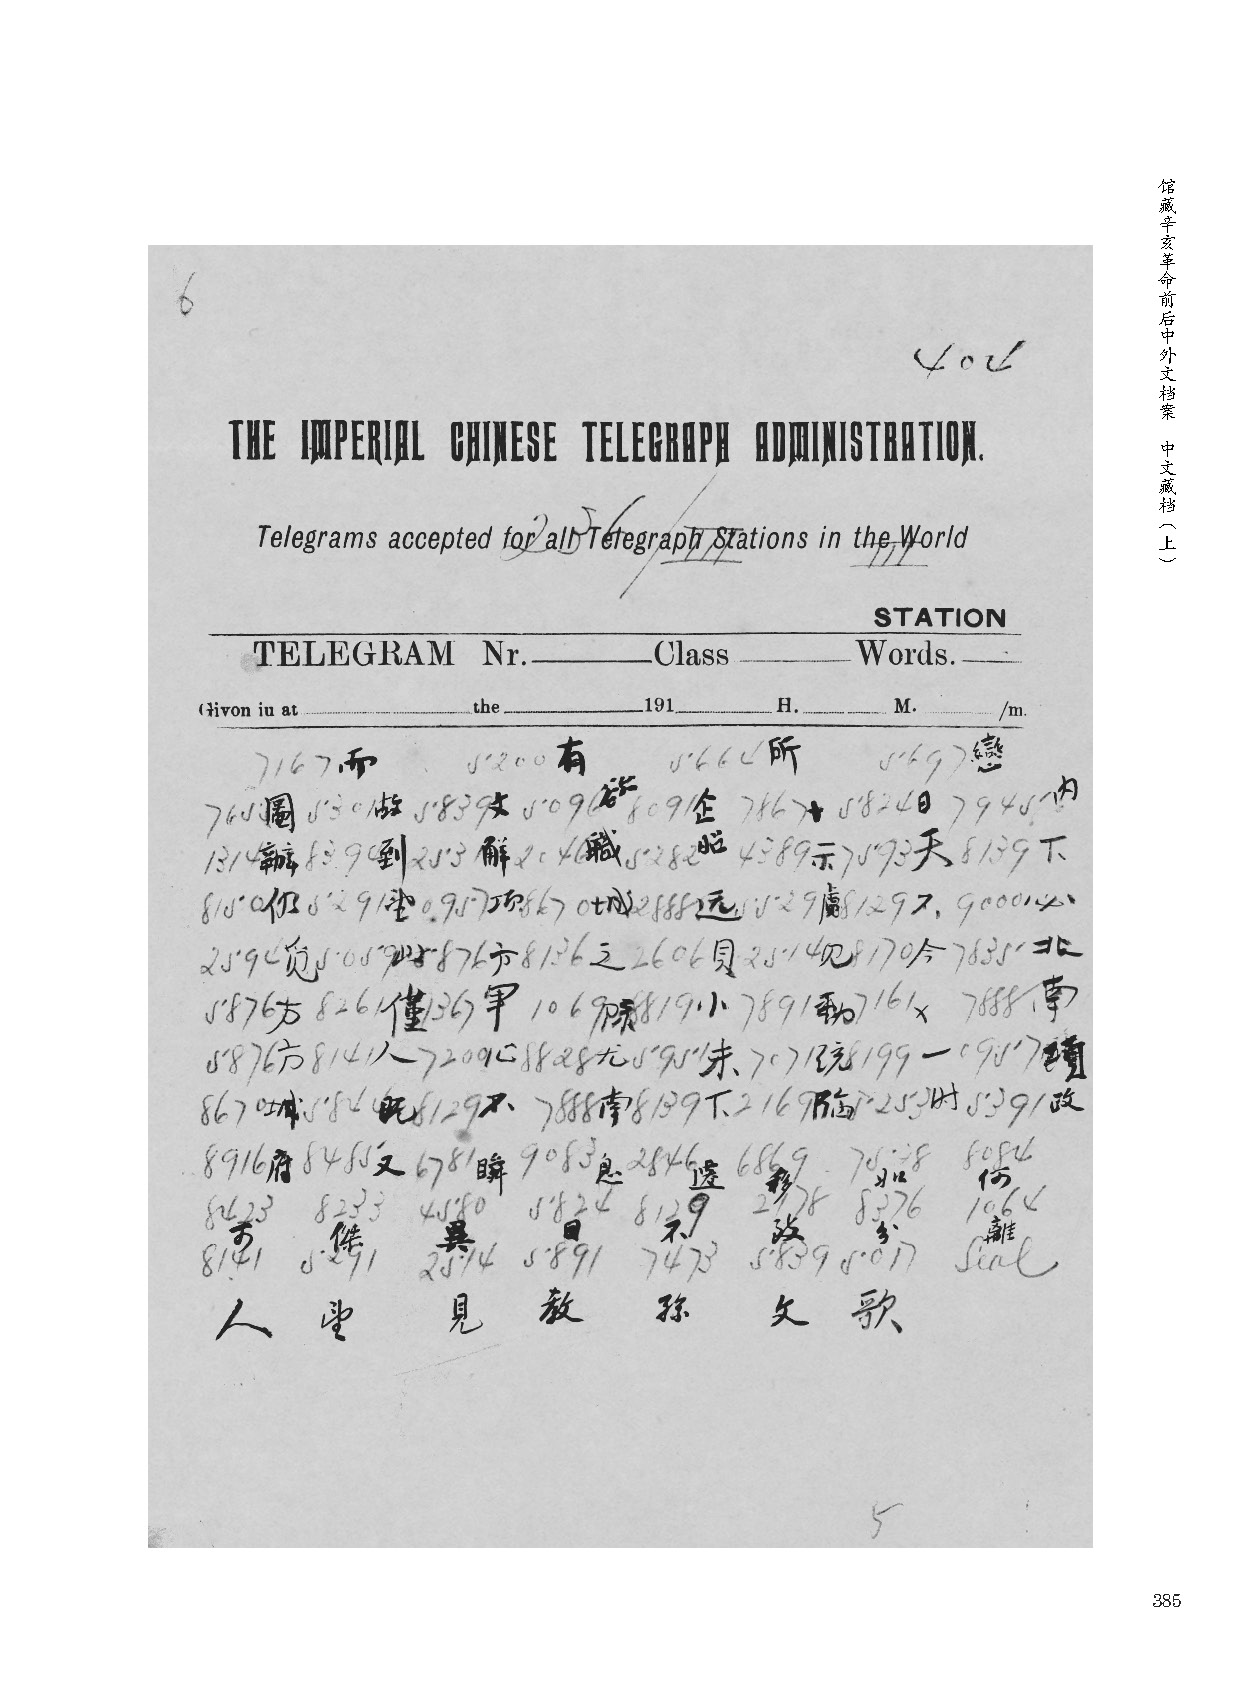 馆藏辛亥革命前后中外文档案 中文藏档（上）
6
404
THE IMPERIAL CHINESE TELEGRAPH ADMINISTRATION.
Telegrams accepted for all Telegraph Stations in the World
256
STATION
TELEGRAM Nr. Class Words.
Givon iu at the 191 H. M. /m.
7167而 5200有 5664所 5697戀
圖 5301故 5839文 8091企 十 5824日 7945内
1314辦 8394到 解 職 5282昭 4389示 7593天 8139下
8150仍 5291望 0957項 8670城 2888远 5529慮 8129不 9000必
2594 5876方 8136之 2606 2514见 8170今 7835北
5876方 8261僅 1367軍 1069 8819小 7891動 7161 7888南
5876方 8141人 7200心 8828尤 5951未 7071統 8199一
8670城 既 8129不 7888南 8139下 2169臨 5253时 5391政
8916府 8485又 6781瞬 9083息 2846 6869移 如 8084何
8423可 8233傑 4580異 5824日 8129不 改 8376分 1064離
8141 5291 2514 5891 7473 5839 5017 Seal
人 望 見 教 孫 文 歌
5
385